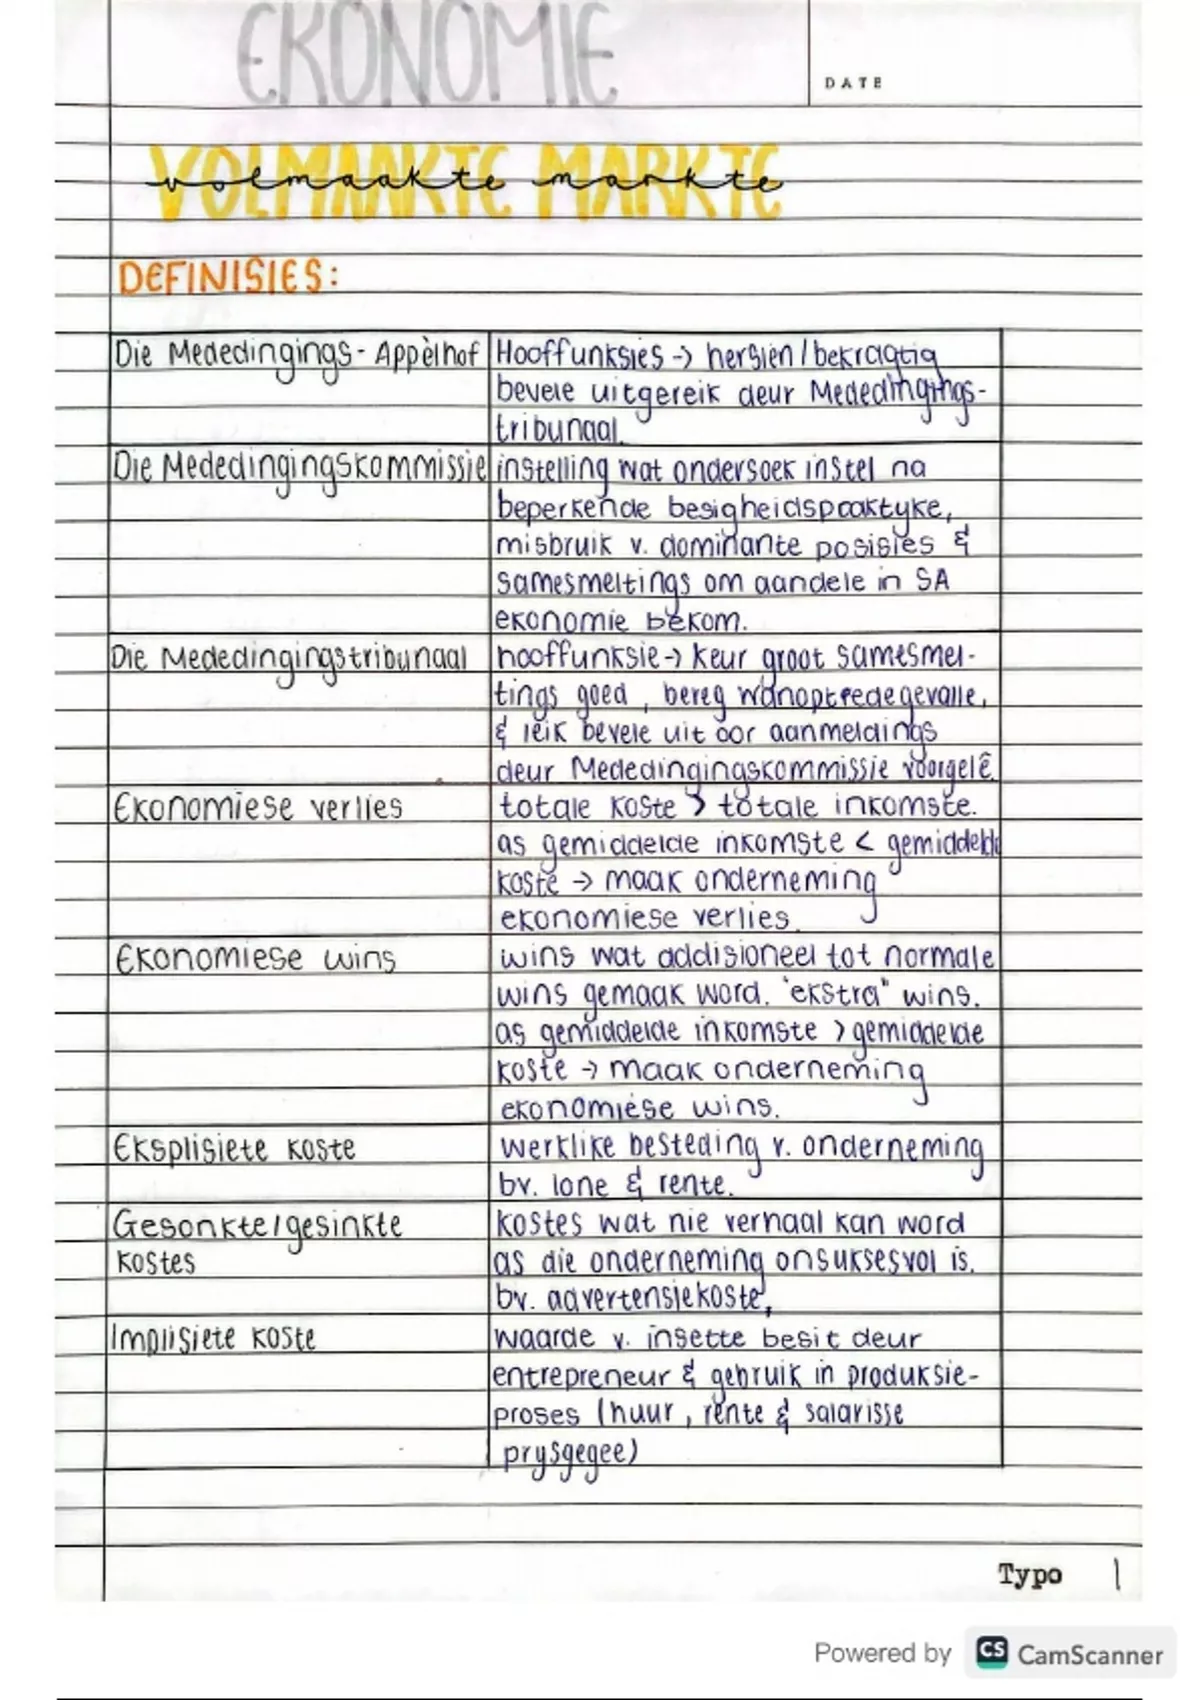 EKONOMIE
DATE
VOLMAAKTE MARKTE
volmaakte markte
DEFINISIES:
Die Mededingings-Appèlhof
Hooffunksies -> hersien/bekragtig
bevele uitgereik deur Mededingings-
tribunaal.
Die Mededingingskommissie
instelling wat ondersoek instel na
beperkende besigheidspraktyke,
misbruik v. dominante posisies &
samesmeltings om aandele in SA
ekonomie bekom.
Die Mededingingstribunaal
hooffunksie -> keur groot samesmel-
tings goed, bereg wanoptredegevalle,
& reik bevele uit oor aanmeldings
deur Mededingingskommissie voorgelê.
Ekonomiese verlies
totale koste > totale inkomste.
as gemiddelde inkomste < gemiddelde
koste -> maak onderneming
ekonomiese verlies.
Ekonomiese wins
wins wat addisioneel tot normale
wins gemaak word. "ekstra" wins.
as gemiddelde inkomste > gemiddelde
koste -> maak onderneming
ekonomiese wins.
Eksplisiete koste
werklike besteding v. onderneming
bv. lone & rente.
Gesonkte/gesinkte
kostes
kostes wat nie verhaal kan word
as die onderneming onsuksesvol is.
bv. advertensiekoste,
Implisiete koste
waarde v. insette besit deur
entrepreneur & gebruik in produksie-
proses (huur, rente & salarisse
prysgegee)
Typo 1
Powered by CS CamScanner